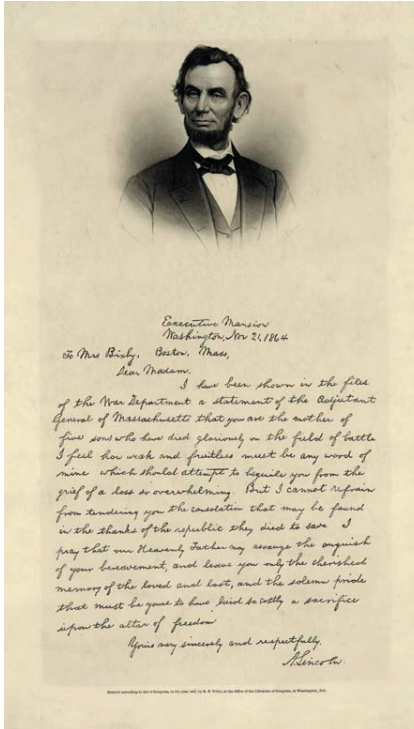 Executive Mansion
Washington, Nov 21, 1864
To Mrs Bixby, Boston, Mass,
Dear Madam.
I have been shown in the files
of the War Department a statement of the Adjutant
General of Massachusetts that you are the mother of
five sons who have died gloriously on the field of battle
I feel how weak and fruitless must be any word of
mine which should attempt to beguile you from the
grief of a loss so overwhelming. But I cannot refrain
from tendering you the consolation that may be found
in the thanks of the republic they died to save I
pray that our Heavenly Father may assuage the anguish
of your bereavement, and leave you only the cherished
memory of the loved and lost, and the solemn pride
that must be yours to have laid so costly a sacrifice
upon the altar of freedom
Yours very sincerely and respectfully.
A. Lincoln.
Entered according to Act of Congress, in the year by in the Office of the Librarian of Congress, at Washington, D.C.